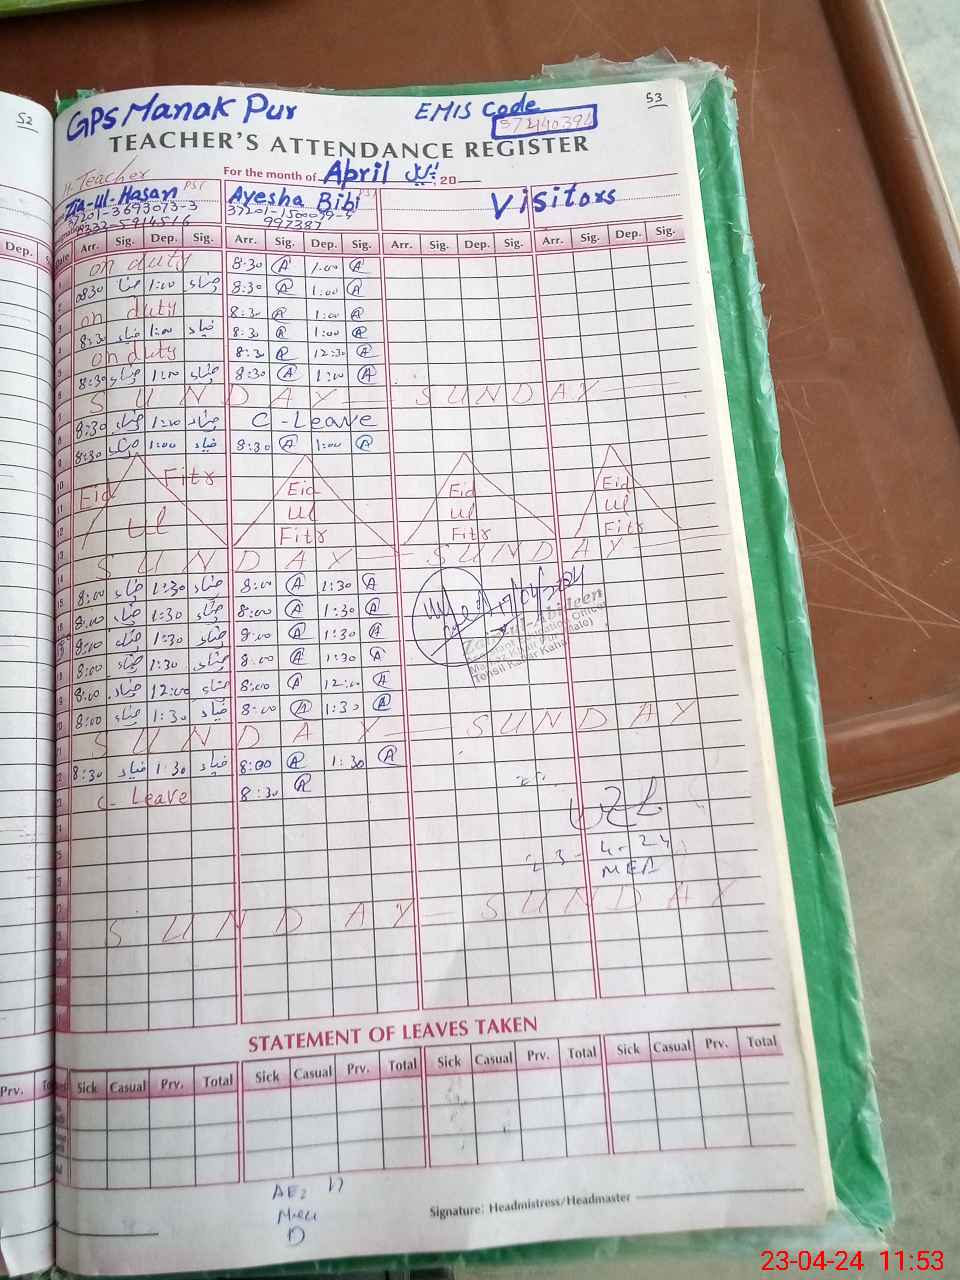 52
53
GPS Manak Pur
EMIS Code
37240391
TEACHER'S ATTENDANCE REGISTER
H. Teacher
For the month of April اپریل 20
Zia-ul-Hasan PST
Ayesha Bibi PST
Visitors
37201-3693073-3
997387
Arr. Sig. Dep. Sig. Arr. Sig. Dep. Sig. Arr. Sig. Dep. Sig. Arr. Sig. Dep. Sig.
on duty 8:30 A 1:00 A
0830 ضیاء 1:00 ضیاء 8:30 A 1:00 A
on duty 8:30 A 1:00 A
8:30 ضیاء 1:00 ضیاء 8:30 A 1:00 A
on duty 8:30 A 12:30 A
8:30 ضیاء 1:00 ضیاء 8:30 A 1:00 A
SUNDAY SUNDAY
8:30 ضیاء 1:00 ضیاء C-Leave
8:30 ضیاء 1:00 ضیاء 8:30 A 1:00 A
Eid ul Fitr
Eid ul Fitr
Eid ul Fitr
Eid ul Fitr
SUNDAY SUNDAY
8:00 ضیاء 1:30 ضیاء 8:00 A 1:30 A
8:00 ضیاء 1:30 ضیاء 8:00 A 1:30 A
8:00 ضیاء 1:30 ضیاء 8:00 A 1:30 A
8:00 ضیاء 1:30 ضیاء 8:00 A 1:30 A
8:00 ضیاء 12:00 ضیاء 8:00 A 12:00 A
8:00 ضیاء 1:30 ضیاء 8:00 A 1:30 A
Tehsil Kallar Kahar
SUNDAY SUNDAY
8:30 ضیاء 1:30 ضیاء 8:00 A 1:30 A
C-Leave 8:30 A
23-4-24
MEA
SUNDAY SUNDAY
STATEMENT OF LEAVES TAKEN
Sick Casual Prv. Total Sick Casual Prv. Total Sick Casual Prv. Total Sick Casual Prv. Total
Signature: Headmistress/Headmaster
23-04-24 11:53